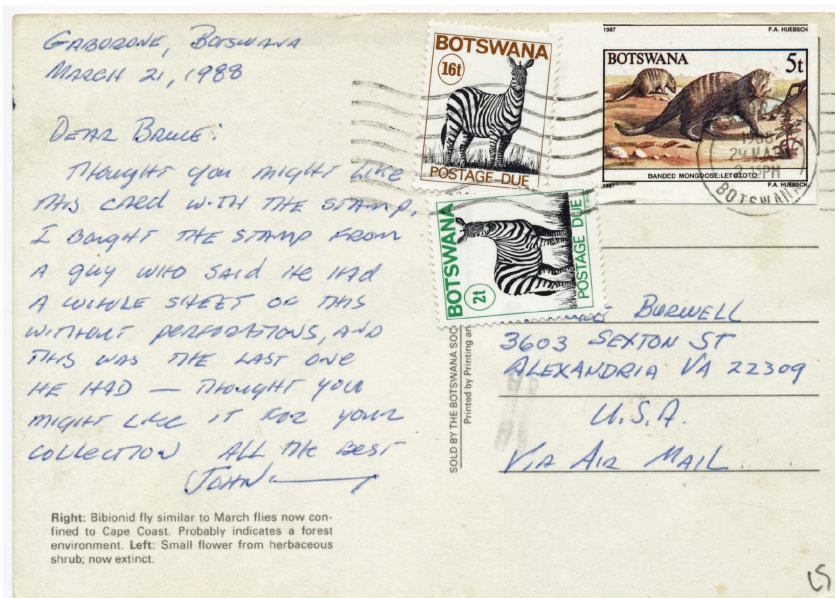 GABORONE, BOTSWANA
MARCH 21, 1988
DEAR BRUCE:
THOUGHT YOU MIGHT LIKE
THIS CARD WITH THE STAMP.
I BOUGHT THE STAMP FROM
A GUY WHO SAID HE HAD
A WHOLE SHEET OF THIS
WITHOUT PERFORATIONS, AND
THIS WAS THE LAST ONE
HE HAD — THOUGHT YOU
MIGHT LIKE IT FOR YOUR
COLLECTION ALL THE BEST
JOHN
Right: Bibionid fly similar to March flies now con-
fined to Cape Coast. Probably indicates a forest
environment. Left: Small flower from herbaceous
shrub; now extinct.
BOTSWANA
16t
POSTAGE DUE
BOTSWANA
2t
POSTAGE DUE
1987 P.A. HUEBSCH
BOTSWANA 5t
BANDED MONGOOSE:LETOTOTO
1987 P.A. HUEBSCH
1988
24 MAR
PM
BOTSWANA
SOLD BY THE BOTSWANA SOC
Printed by Printing an
BURWELL
3603 SEXTON ST
ALEXANDRIA VA 22309
U.S.A.
VIA AIR MAIL